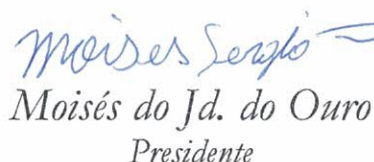 Moises Sergio
Moisés do Jd. do Ouro
Presidente